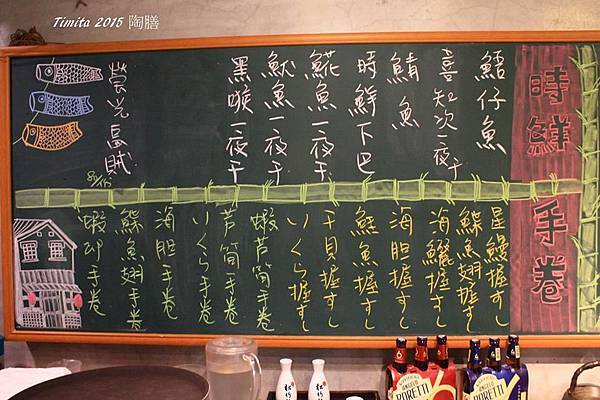 Timita 2015 陶膳
時鮮
手卷
鮚仔魚
喜知次一夜干
鯖魚
時鮮下巴
鯡魚一夜干
魷魚一夜干
黑喉一夜干
螢光烏賊
80/份
星鰻握すし
鰈魚翅握すし
海鱺握すし
海胆握すし
鮭魚握すし
干貝握すし
いくら握すし
蝦芦筍手卷
芦筍手卷
いくら手卷
海胆手卷
鰈魚翅手卷
蝦卵手卷
ANGELO
PORETTI
ANGELO
PORETTI